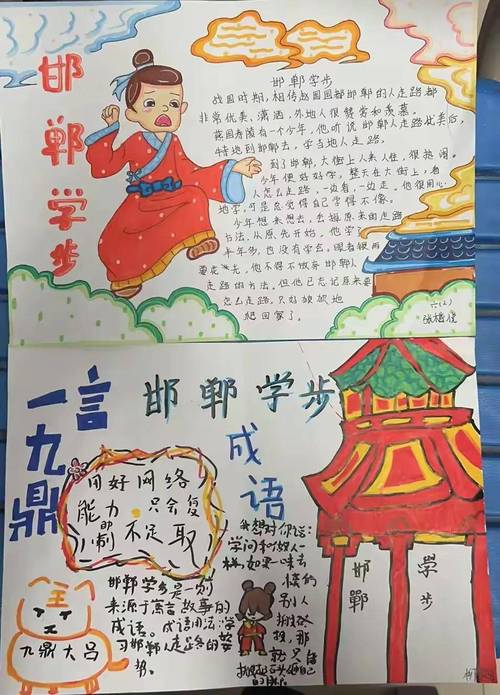 邯郸学步
邯郸学步
战国时期,相传赵国国都邯郸的人走路都
非常优美、潇洒,外地人很赞赏和羡慕。
燕国寿陵有一个少年,他听说邯郸人走路优美后,
特地到邯郸去,学当地人走路。
到了邯郸,大街上人来人往,很热闹。
少年便好好学,整天在大街上,看
人怎么走路,一边看,一边走,他很用心
地学,可是总觉得自己学得不像。
少年想来想去,去掉原来的走路
方法,从原先开始,他学了
半年多,也没有学会。眼看银两
要花光,他不得不放弃邯郸人
走路的方法。但他已忘记原来
怎么走路,只好
地
爬回家了。
六(2)
一言九鼎
邯郸学步
成语
用好网络
能力 只会复
即
制 不足取
邯郸学步是一则
来源于寓言故事的
成语。成语用法:学
习邯郸人走路的姿
势。
我想对你说:
学问和做人一
样,如果一味去
模仿
别人
那
就只
王
九鼎大吕
邯郸
学步